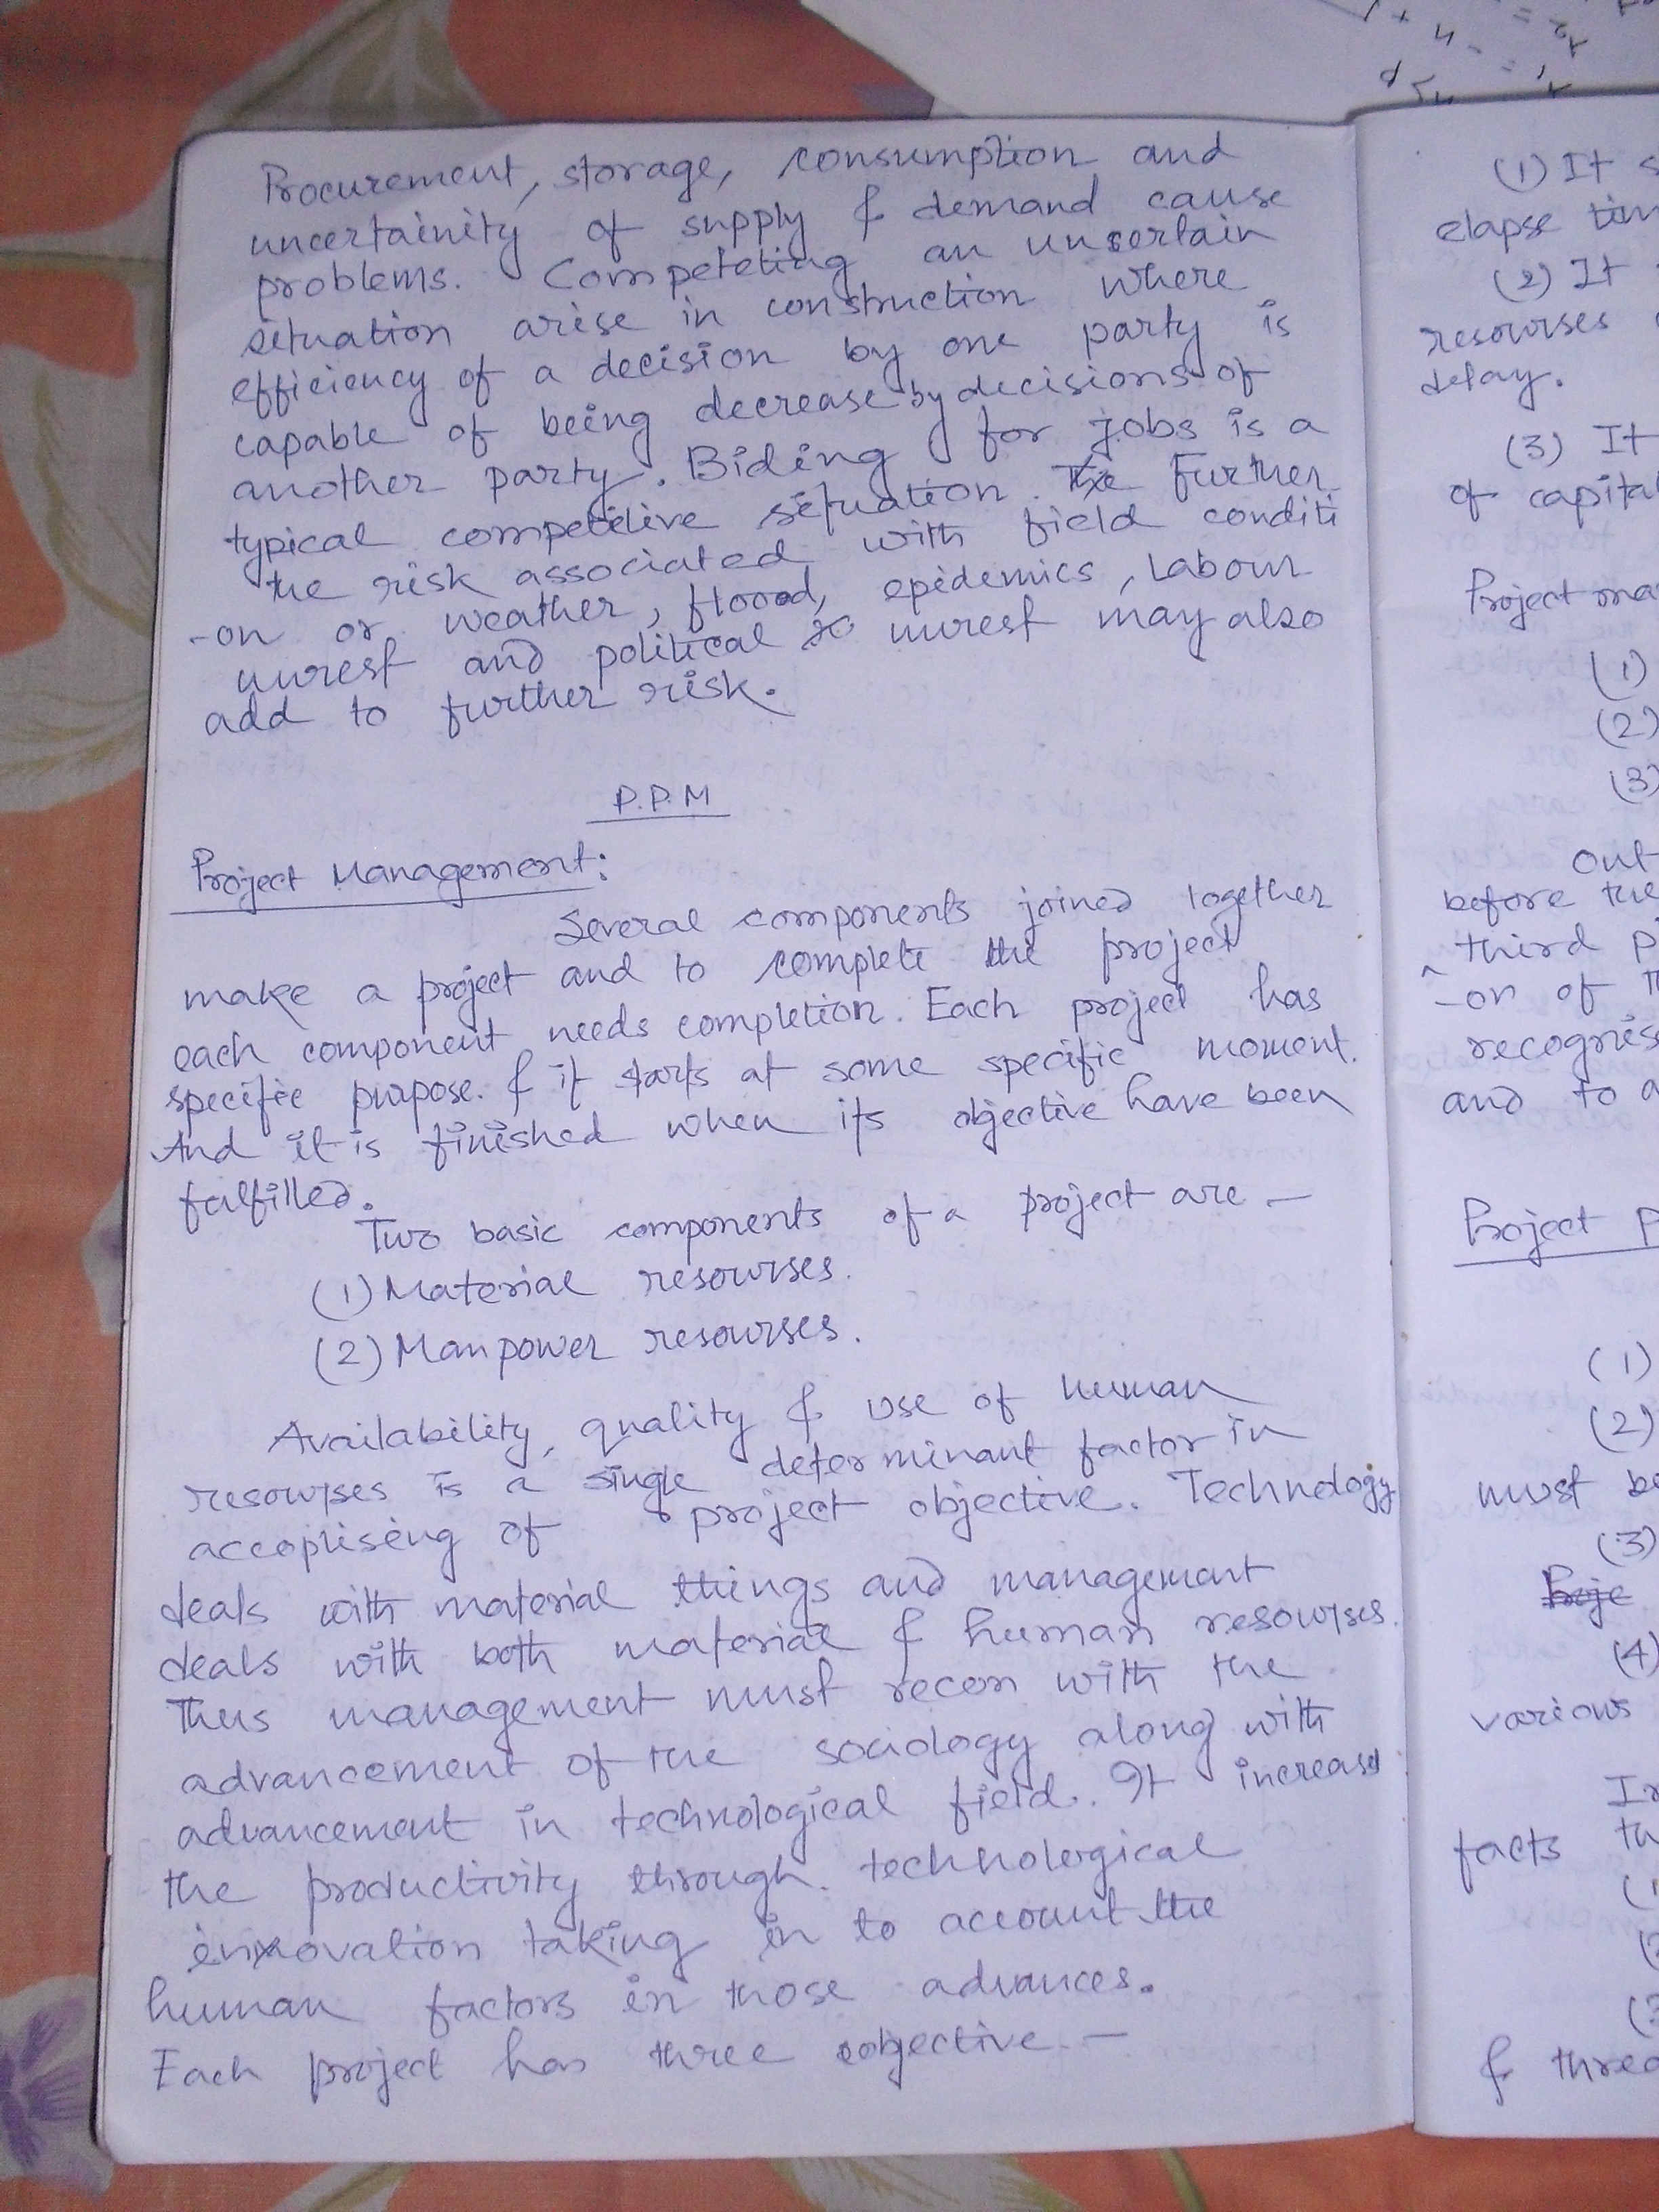 Procurement, storage, consumption and
uncertainity of supply & demand cause
problems. Competeting an uncertain
situation arise in construction where
efficiency of a decision by one party is
capable of being decrease by decisions of
another party. Biding for jobs is a
typical competitive situation. The Further
the risk associated with field conditi
-on or weather, flood, epidemics, Labour
unrest and political unrest may also
add to further risk.
P.P.M
Project Management:
Several components joined together
make a project and to complete the project
each component needs completion. Each project has
specific purpose. & it starts at some specific moment.
And it is finished when its objective have been
fulfilled.
Two basic components of a project are -
(1) Material resourses.
(2) Manpower resourses.
Availability, quality & use of human
resourses is a single determinant factor in
accoplising of project objective. Technology
deals with material things and management
deals with both material & human resourses.
Thus management must recon with the
advancement of the sociology along with
advancement in technological field. It increased
the productivity through technological
innovation taking in to account the
human factors in those advances.
Each project has three objective. -
(1) It s
elapse tim
(2) It
resourses
delay.
(3) It
of capital
Project ma
(1)
(2)
(3)
Out
before the
third p
-on of
recognis
and to a
Project P
(1)
(2)
must be
(3)
Proje
(4)
various
In
facts th
(1
& three